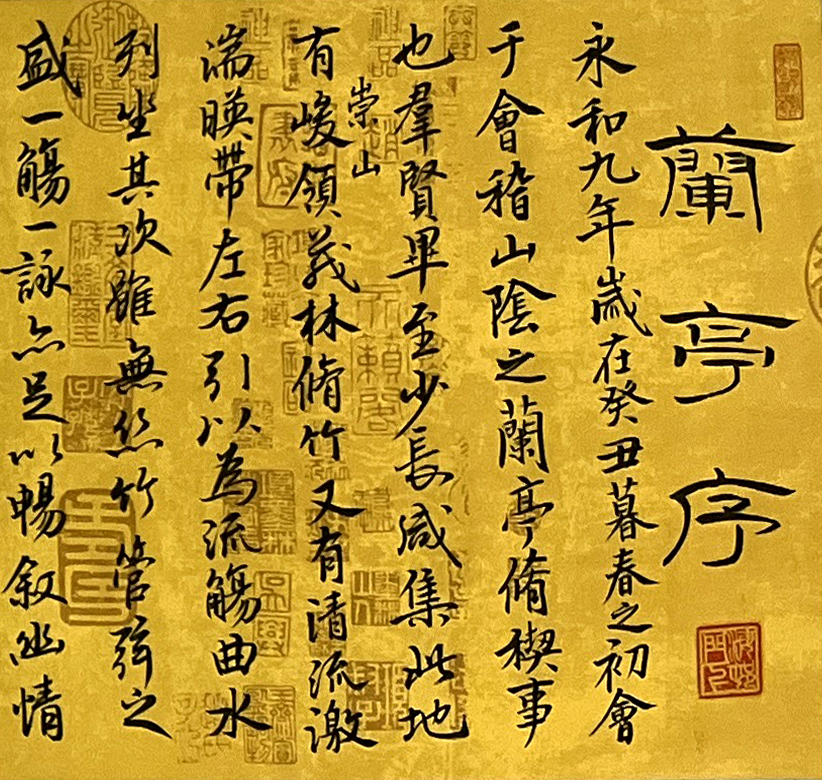 蘭亭序
永和九年歲在癸丑暮春之初會
于會稽山陰之蘭亭脩稧事
也羣賢畢至少長咸集此地
有崇山峻領茂林脩竹又有清流激
湍暎帶左右引以為流觴曲水
列坐其次雖無絲竹管弦之
盛一觴一詠亦足以暢叙幽情